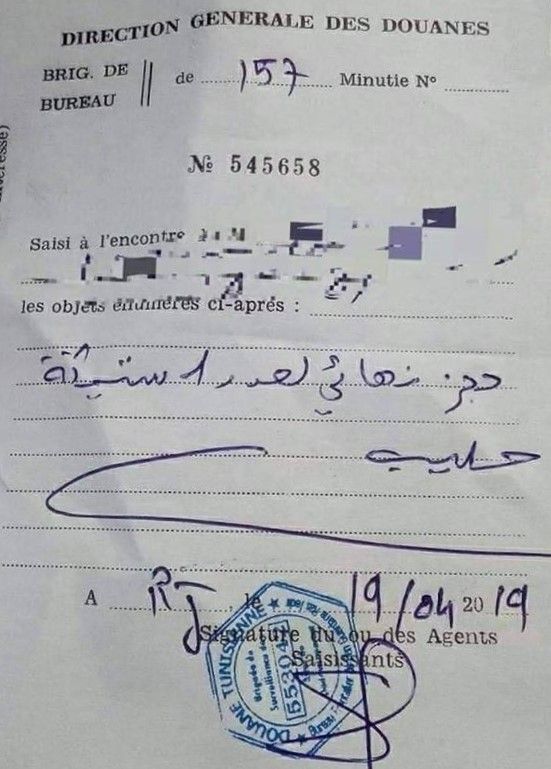 DIRECTION GENERALE DES DOUANES
BRIG. DE
BUREAU
de 157 Minutie Nº
Nº 545658
Saisi à l'encontre
les objets énumérés ci-après :
حجز نهائي لعدد 1 ستيتة
حليب
A RJ, le 19/04 2019
Signature du ou des Agents
Saisissants
DOUANE TUNISIENNE
Brigade de
Surveillance de
55304